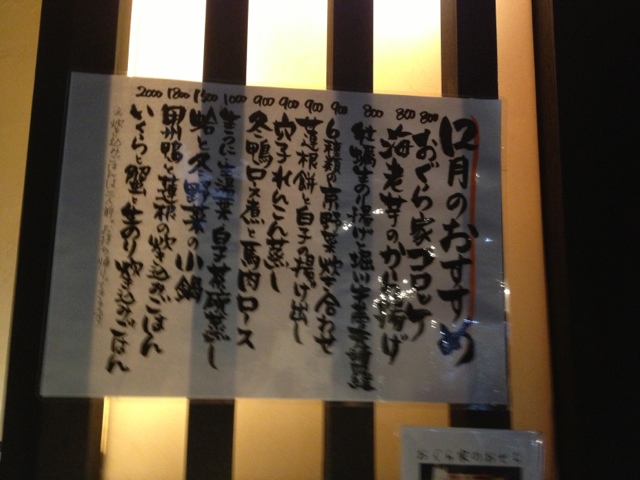 12月のおすすめ
おぐら家コロッケ 800
海老芋のから揚げ 800
牡蠣生のり揚げと堀い 800
6種類の京野菜炊き合わせ 900
蓮根餅と白子の揚げ出し 900
穴子れんこん蒸し 900
冬鴨ロース煮と馬肉ロース 900
生うに 湯葉 白子茶碗蒸し 1000
蛤と冬野菜の小鍋 1500
甲州鴨と蓮根の炊き込みごはん 1800
いくらと蟹と生のり炊き込みごはん 2000